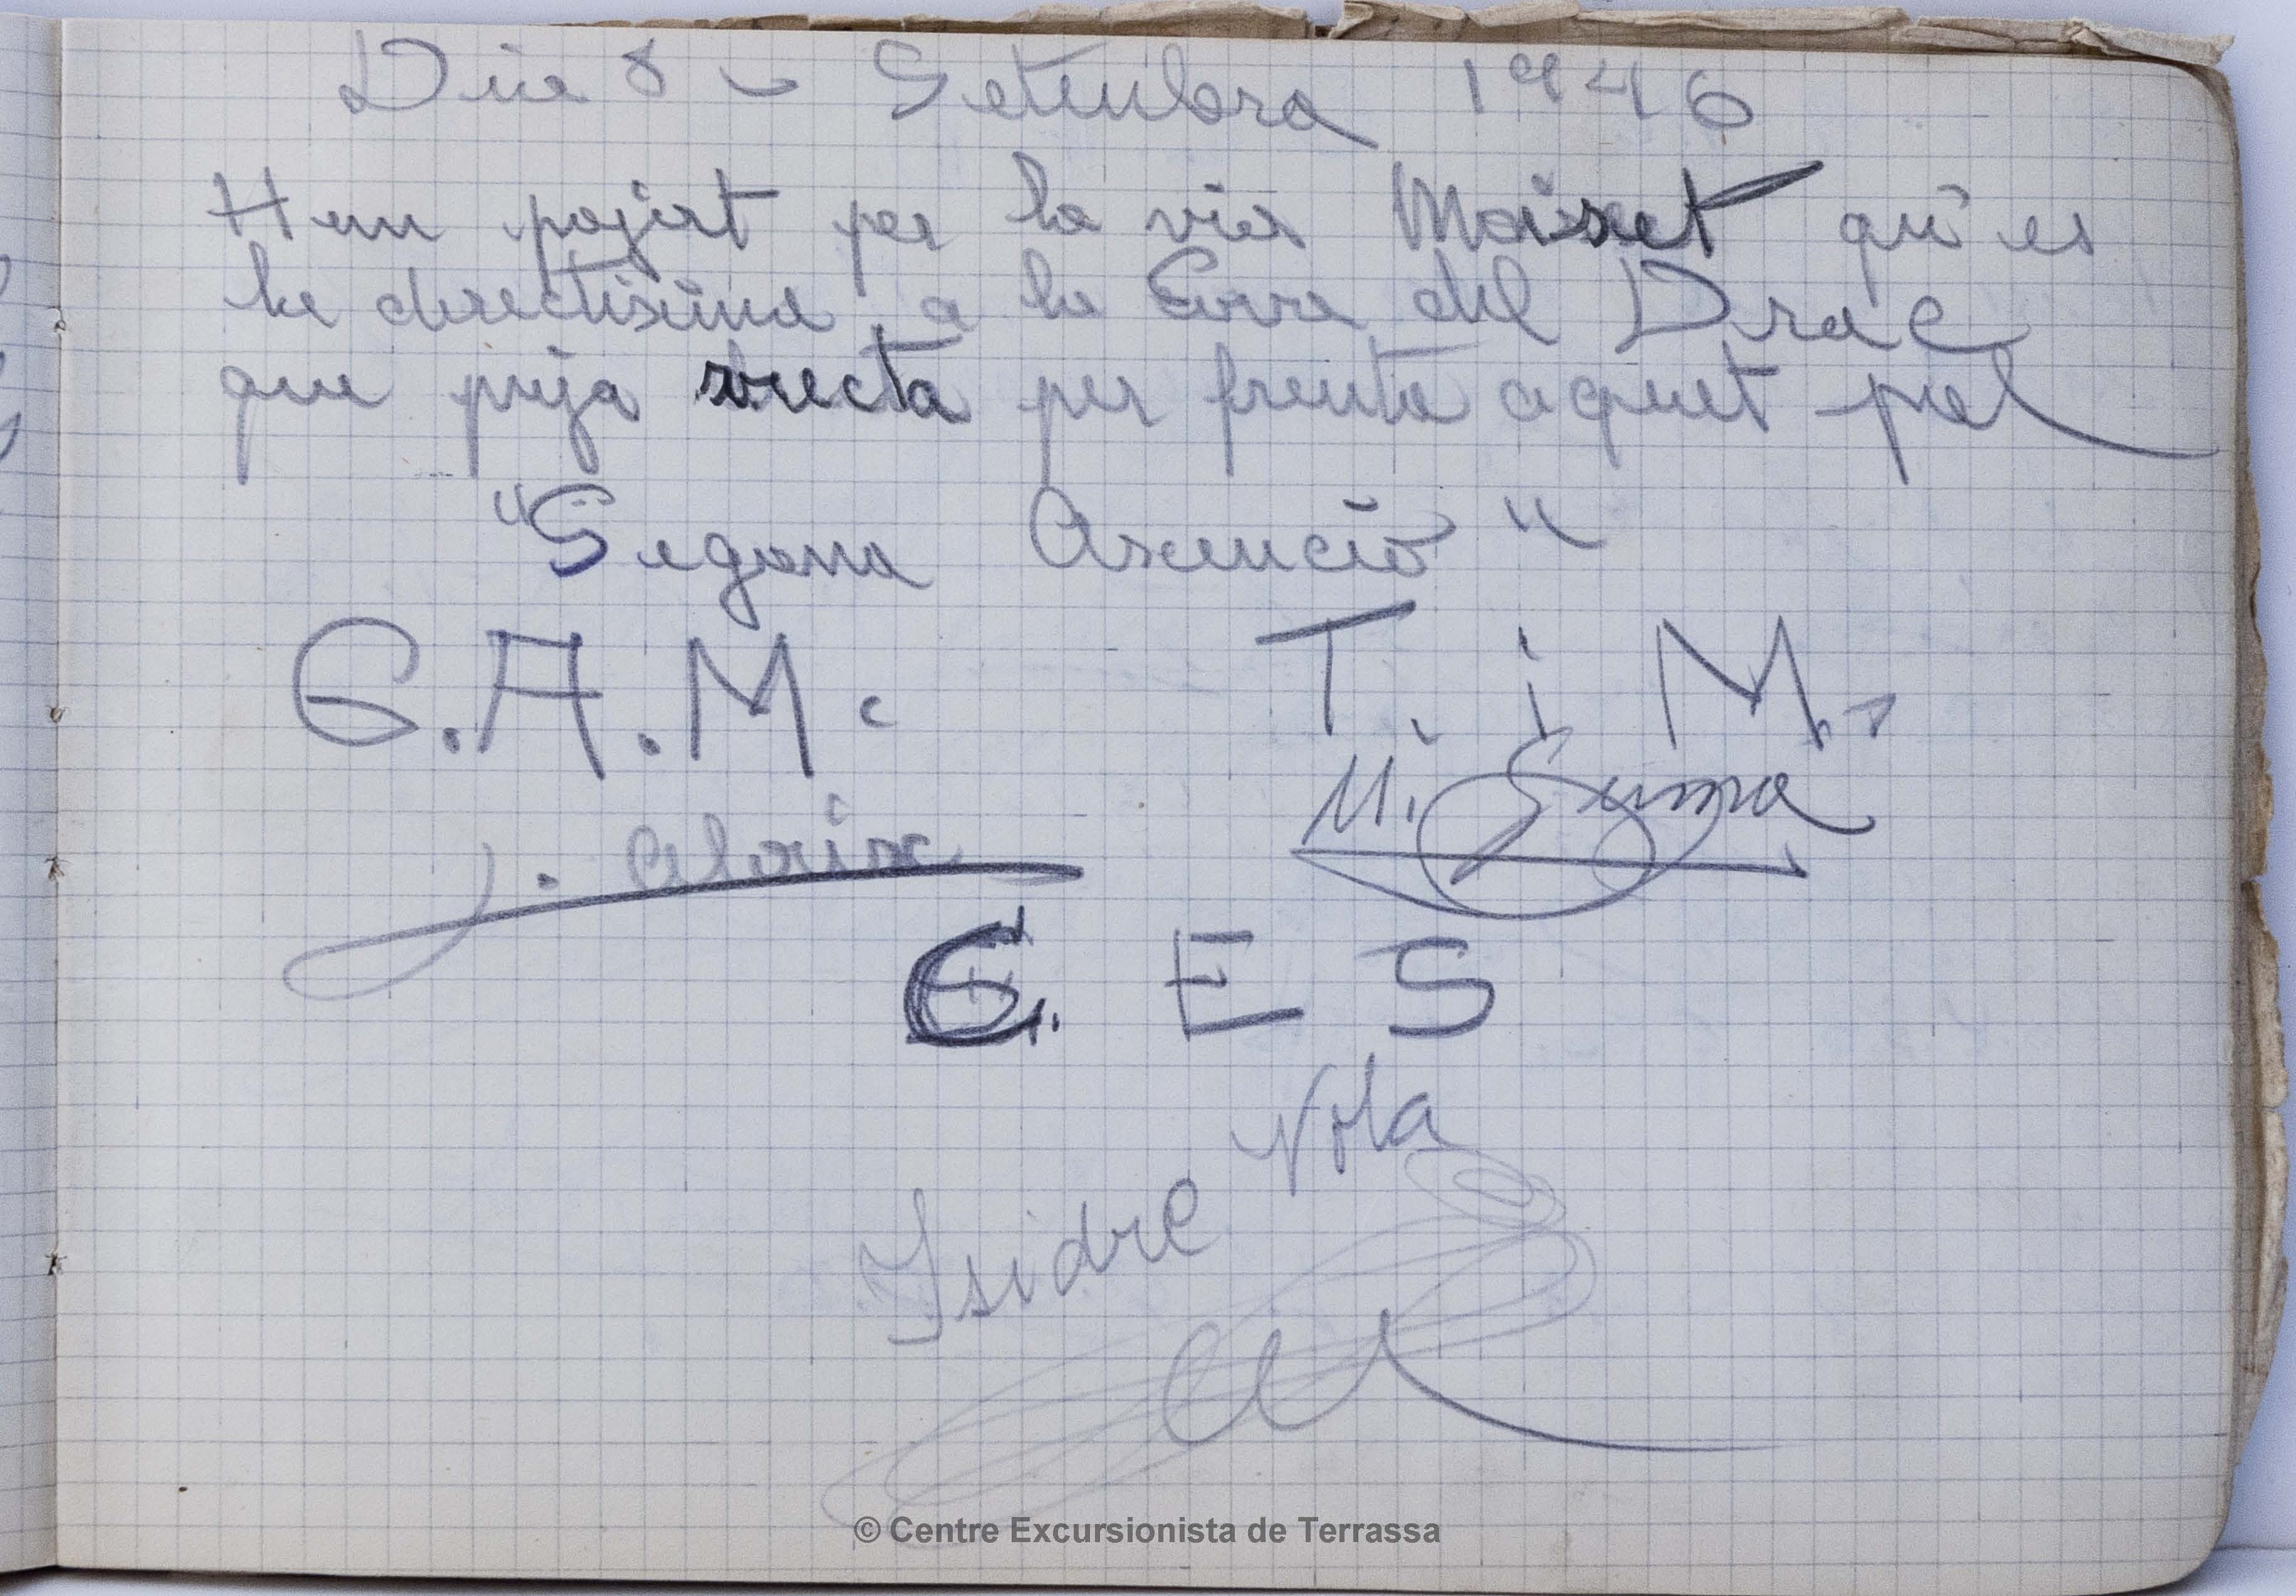 Dia 8 - Setembra 1946
Hem pojat per la via Maixet qu'es
la directisima a la Cova del Drac
que puja recta per frente aquet
"Segona Ascenció"
G.A.M. T. i M.
J. Aloix M.
C. E S
Isidre Vila
© Centre Excursionista de Terrassa